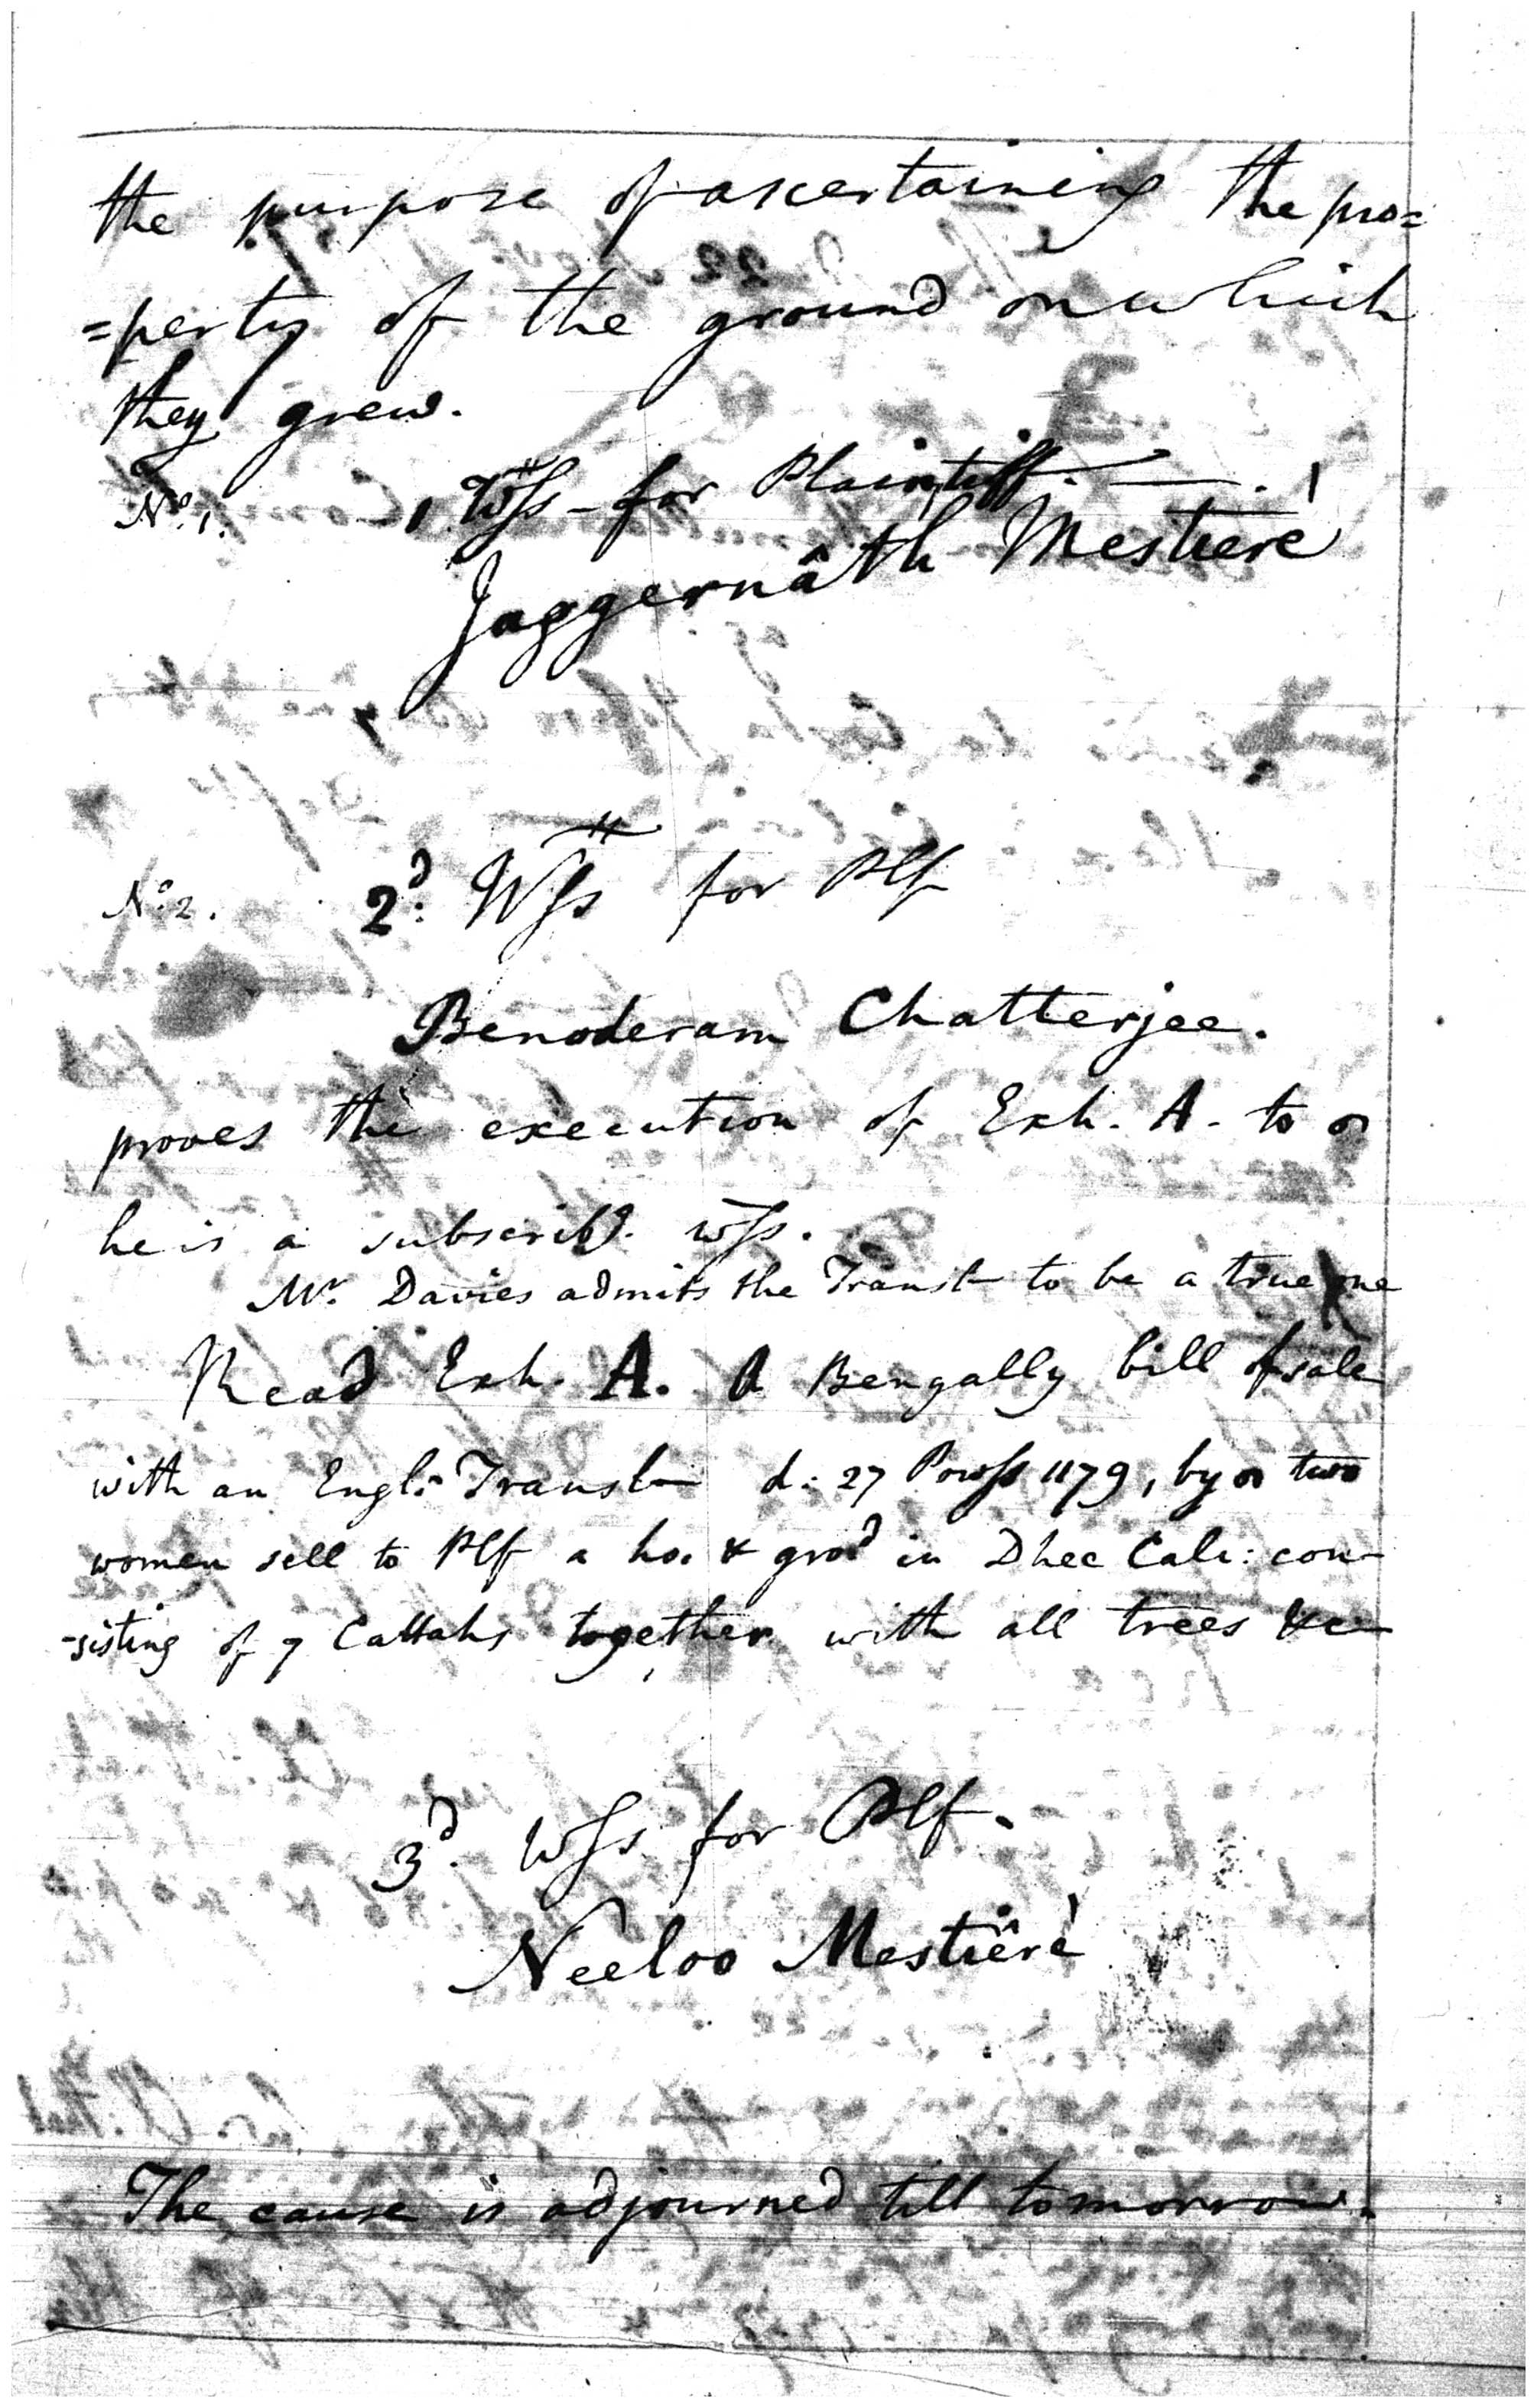 the purpose of ascertaining the pro=
=perty of the ground on which
they grew.
No. 1. 1 Wss - for Plaintiff.
Jaggernâth Mestieré
No. 2. 2d: Wss for Plf
Benoderam Chatterjee.
proves the execution of Exh. A. to
he is a subscribg. wss.
Mr. Davies admits the Transl to be a true one
Read Exh. A. A Bengally bill of sale
with an Engl: Transl d: 27 Powss 1179, by two
women sell to Plf a ho. & grod in Dhee Calc: con-
-sisting of 7 Cattahs together with all trees &c
3d. Wss for Plf.
Neeloo Mestiêré
The cause is adjourned till tomorrow.